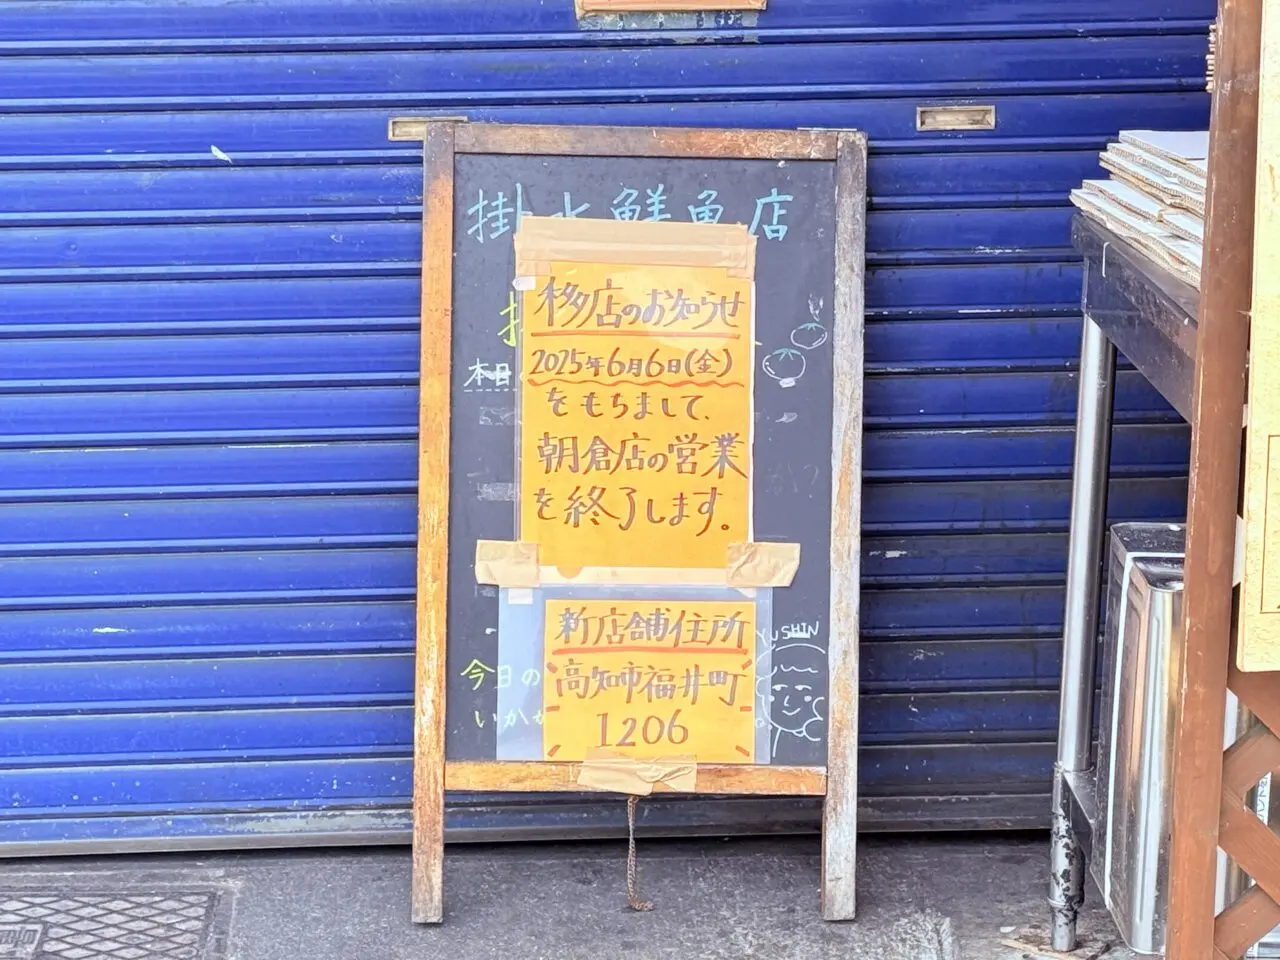 掛水鮮魚店
移店のお知らせ
2025年6月6日(金)
をもちまして、
朝倉店の営業
を終了します。
本日
新店舗住所
高知市福井町
1206
YUSHIN
今日の
いか